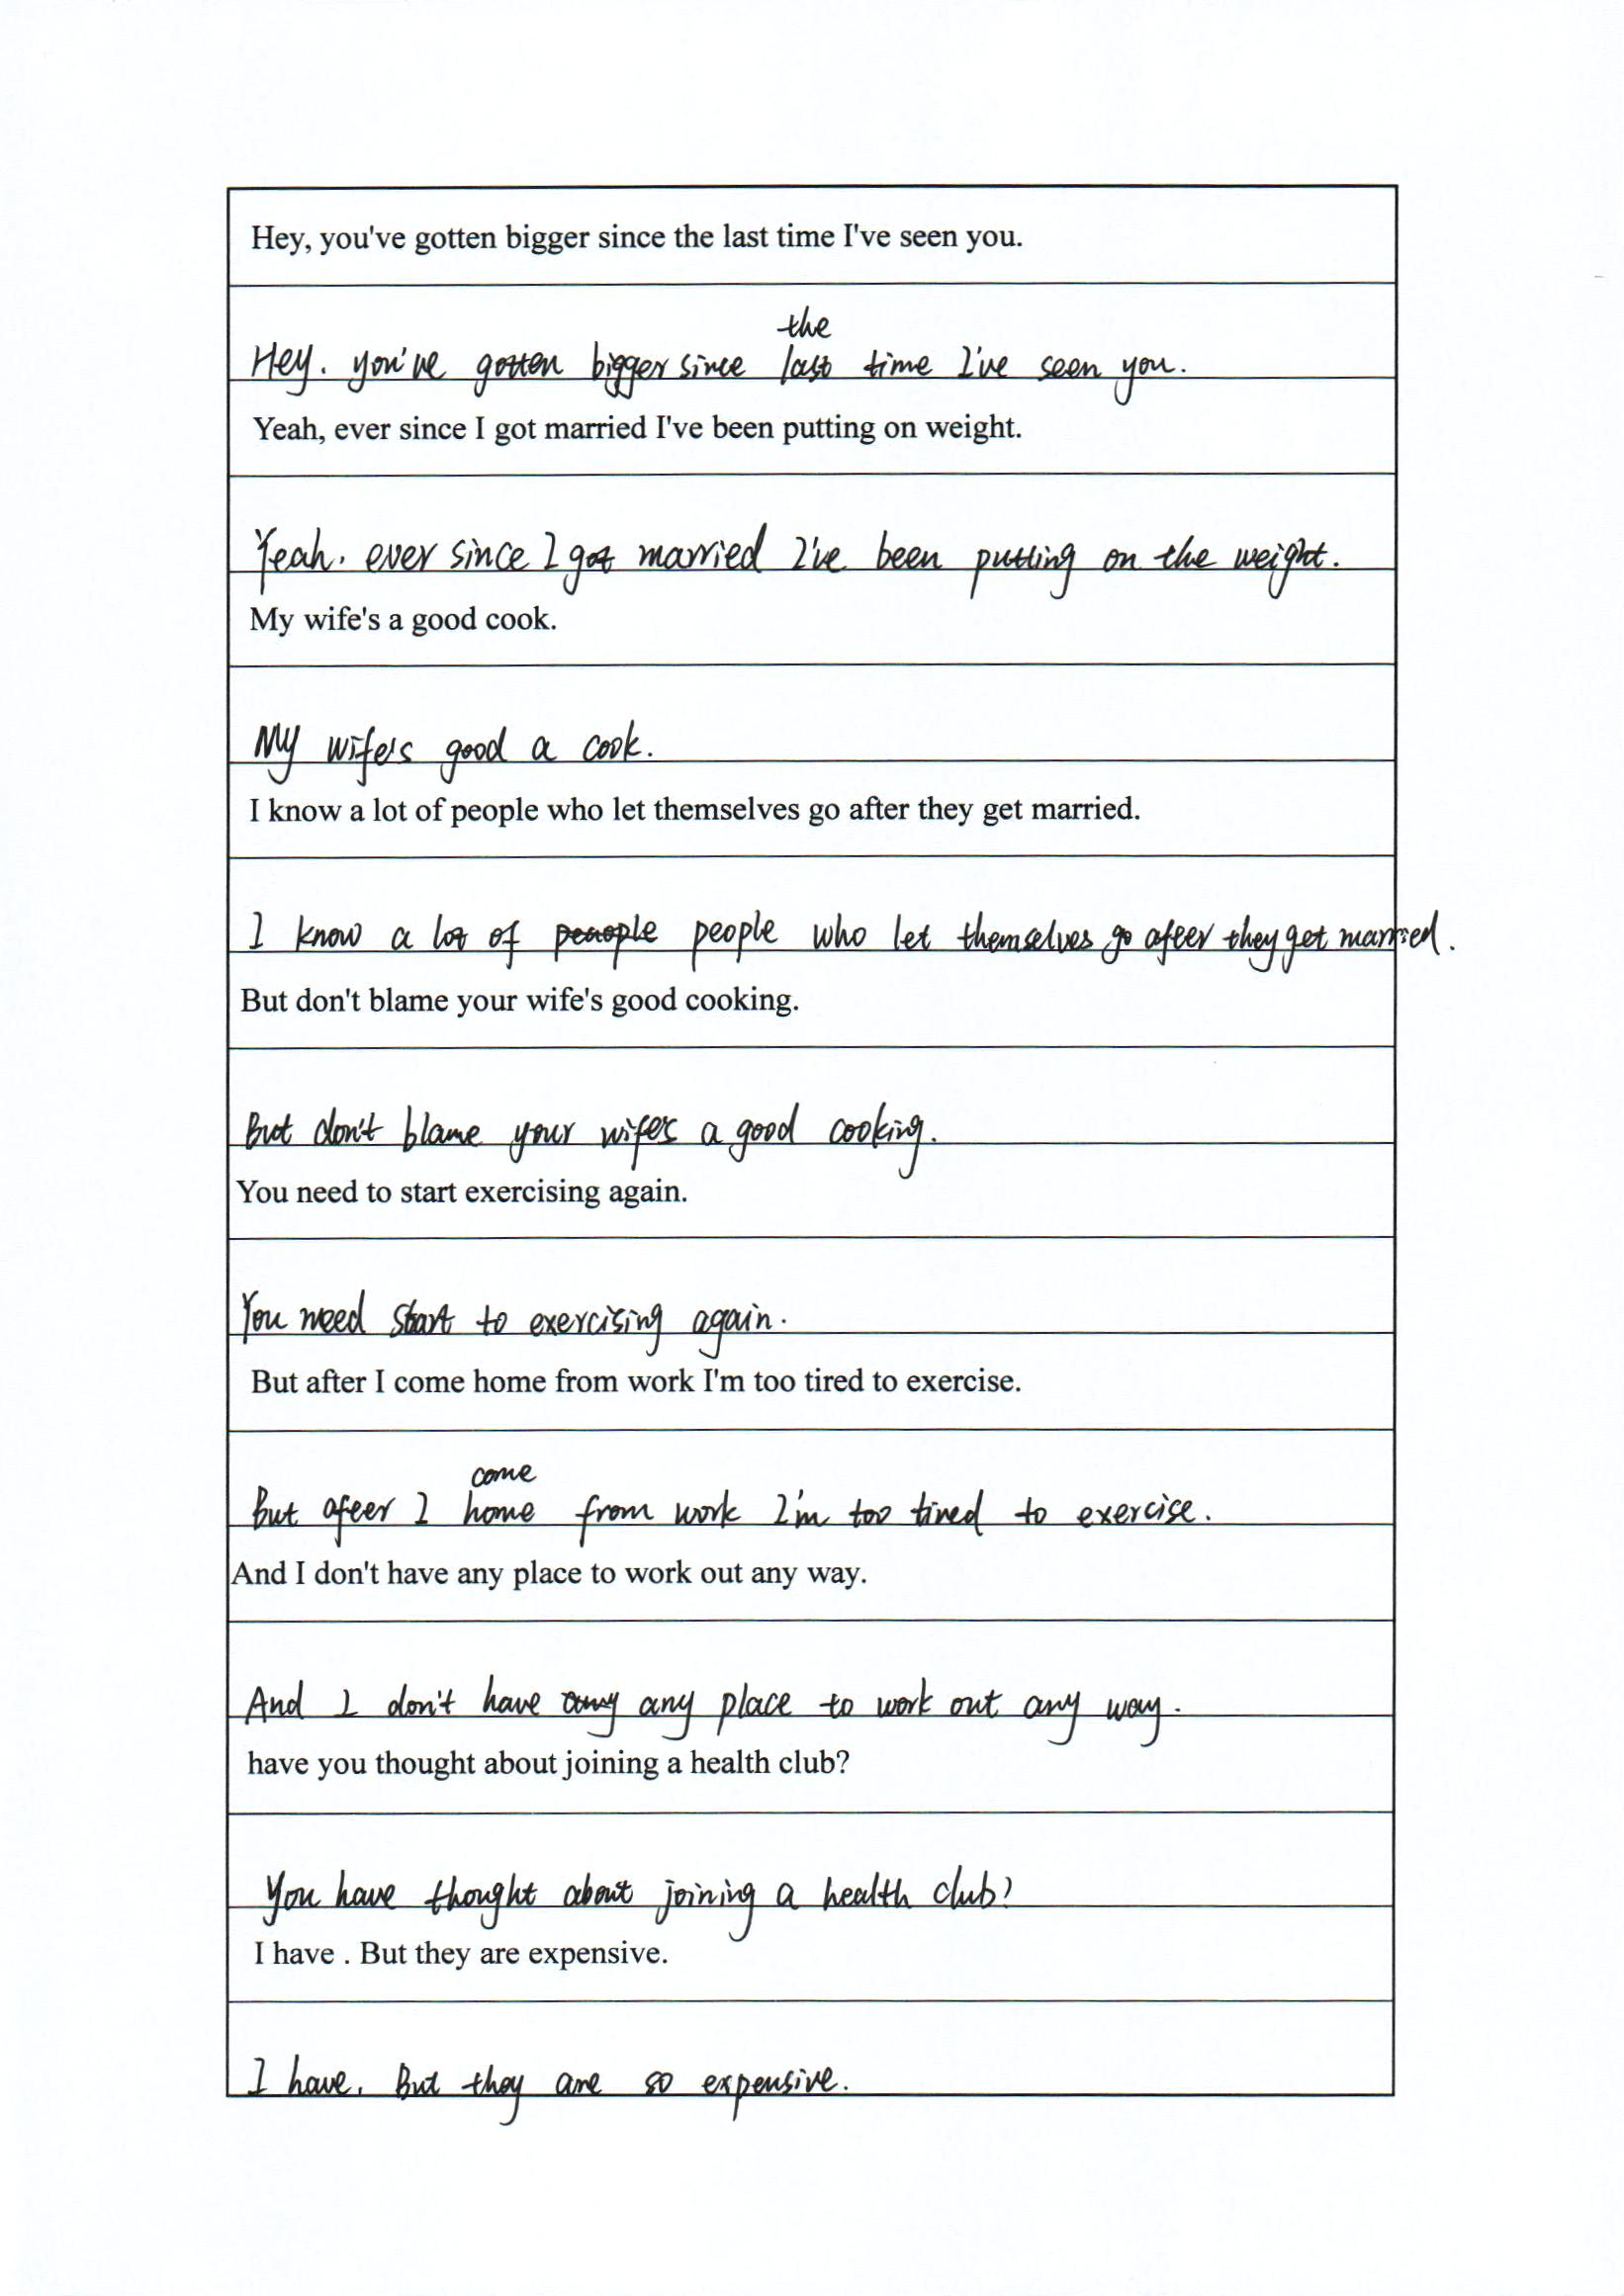 Hey, you've gotten bigger since the last time I've seen you.
the
Hey. you've gotten bigger since last time I've seen you.
Yeah, ever since I got married I've been putting on weight.
Yeah. ever since I got married I've been putting on the weight.
My wife's a good cook.
My wife's good a cook.
I know a lot of people who let themselves go after they get married.
I know a lot of peaople people who let themselves go afeer they get married.
But don't blame your wife's good cooking.
But don't blame your wife's a good cooking.
You need to start exercising again.
You need start to exercising again.
But after I come home from work I'm too tired to exercise.
come
But afeer I home from work I'm too tired to exercise.
And I don't have any place to work out any way.
And I don't have any place to work out any way.
have you thought about joining a health club?
You have thought about joining a health club?
I have . But they are expensive.
I have. But they are so expensive.